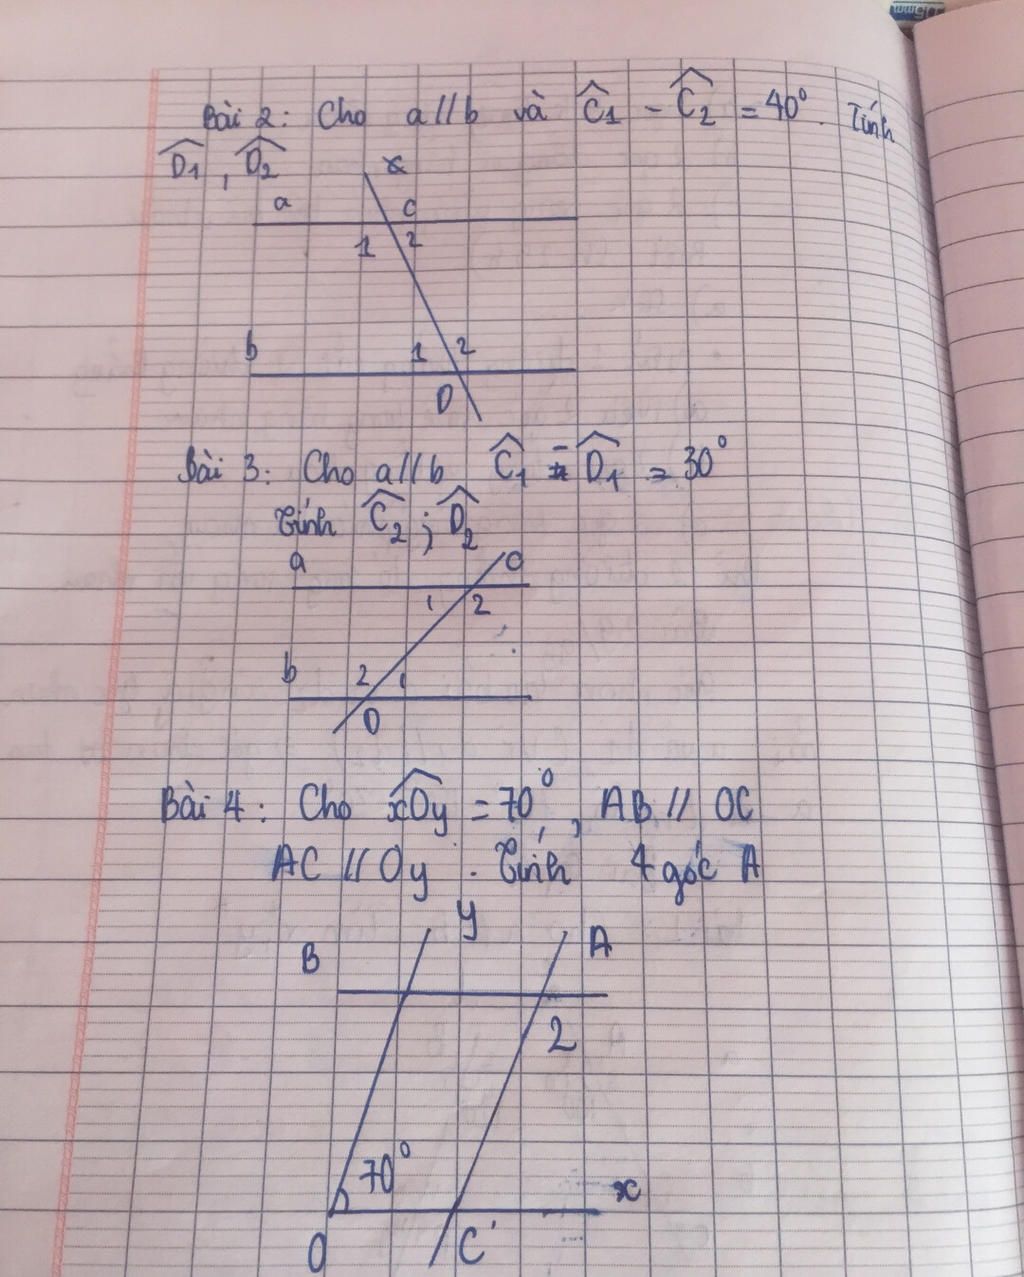 Bài 2: Cho a//b và Ĉ1 - Ĉ2 = 40°. Tính
D̂1, D̂2
x
a c
1 2
b 1 2
D
Bài 3: Cho a//b Ĉ1 - D̂1 = 30°
Tính Ĉ2; D̂2
a c
1 2
b 2 1
D
Bài 4: Cho xOy = 70°, AB // OC
AC // Oy. Tính 4 góc A
y
B A
2
70°
x
O C